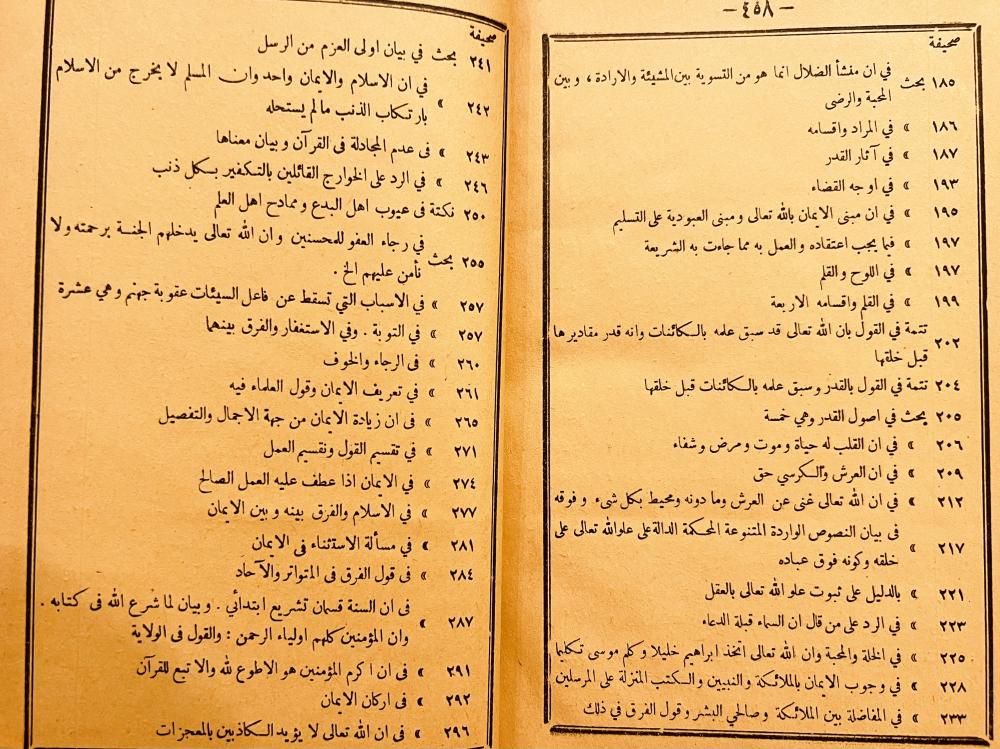 — ٤٥٨ —
صحيفة
١٨٥ بحث في ان منشأ الضلال انما هو من التسوية بين المشيئة والارادة ، وبين
المحبة والرضى
١٨٦ » في المراد واقسامه
١٨٧ » في آثار القدر
١٩٣ » في اوجه القضاء
١٩٥ » في ان مبنى الايمان بالله تعالى ومبنى العبودية على التسليم
١٩٧ » فيما يجب اعتقاده والعمل به مما جاءت به الشريعة
١٩٧ » في اللوح والقلم
١٩٩ » في القلم واقسامه الاربعة
٢٠٢ تتمة في القول بان الله تعالى قد سبق علمه بالكائنات وانه قدر مقاديرها
قبل خلقها
٢٠٤ تتمة في القول بالقدر وسبق علمه بالكائنات قبل خلقها
٢٠٥ بحث في اصول القدر وهي خمسة
٢٠٦ » في ان القلب له حياة وموت ومرض وشفاء
٢٠٩ » في ان العرش والكرسي حق
٢١٢ » في ان الله تعالى غنى عن العرش وما دونه ومحيط بكل شىء وفوقه
٢١٧ » فى بيان النصوص الواردة المتنوعة المحكمة الدالة على علو الله تعالى على
خلقه وكونه فوق عباده
٢٢١ » بالدليل على ثبوت علو الله تعالى بالعقل
٢٢٣ » في الرد على من قال ان السماء قبلة الدعاء
٢٢٥ » في الخلة والمحبة وان الله تعالى اتخذ ابراهيم خليلا وكلم موسى تكليما
٢٢٨ » في وجوب الايمان بالملائكة والنبيين والكتب المنزلة على المرسلين
٢٣٣ » في المفاضلة بين الملائكة وصالحي البشر وقول الفرق في ذلك
صحيفة
٢٤١ بحث في بيان اولى العزم من الرسل
٢٤٢ » في ان الاسلام والايمان واحد وان المسلم لا يخرج من الاسلام
بارتكاب الذنب مالم يستحله
٢٤٣ » فى عدم المجادلة فى القرآن وبيان معناها
٢٤٦ » في الرد على الخوارج القائلين بالتكفير بكل ذنب
٢٥٠ نكتة فى عيوب اهل البدع وممادح اهل العلم
٢٥٥ بحث في رجاء العفو للمحسنين وان الله تعالى يدخلهم الجنة برحمته ولا
نأمن عليهم الخ .
٢٥٧ » في الاسباب التي تسقط عن فاعل السيئات عقوبة جهنم وهي عشرة
٢٥٧ » في التوبة . وفي الاستغفار والفرق بينهما
٢٦٠ » فى الرجاء والخوف
٢٦١ » في تعريف الايمان وقول العلماء فيه
٢٦٥ » فى ان زيادة الايمان من جهة الاجمال والتفصيل
٢٧١ » في تقسيم القول وتقسيم العمل
٢٧٤ » في الايمان اذا عطف عليه العمل الصالح
٢٧٧ » في الاسلام والفرق بينه وبين الايمان
٢٨١ » في مسألة الاستثناء فى الايمان
٢٨٤ » فى قول الفرق في المتواتر والآحاد
٢٨٧ » فى ان السنة قسمان تشريع ابتدأئي . وبيان لما شرع الله فى كتابه .
وان المؤمنين كلهم اولياء الرحمن : والقول فى الولاية
٢٩١ » فى ان اكرم المؤمنين هو الاطوع لله والاتبع للقرآن
٢٩٢ » فى اركان الايمان
٢٩٦ » فى ان الله تعالى لا يؤيد الكاذبين بالمعجزات